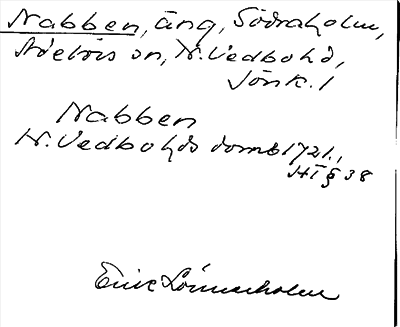 Nabben, äng, Södraholm,
sn, N. Vedbo hd,
Jönk. l
Nabben
N. Vedbo hds domb 1721,
HT § 38
Eric Lönnerholm